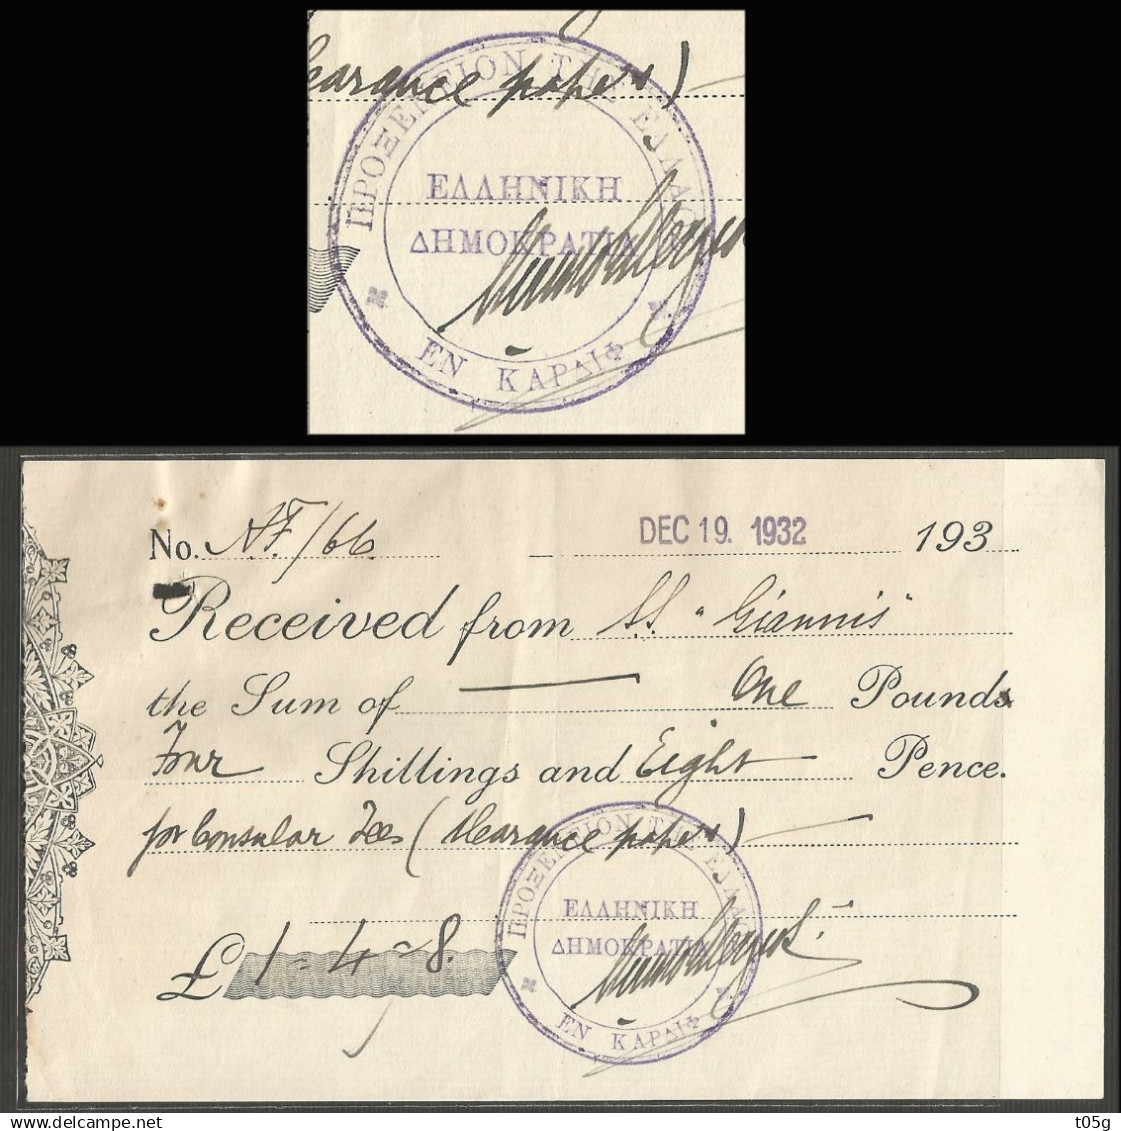 earance papers)
ΠΡΟΞΕΝΕΙΟΝ ΤΗΣ ΕΛΛΑΔΟΣ
ΕΛΛΗΝΙΚΗ
ΔΗΜΟΚΡΑΤΙΑ
ΕΝ ΚΑΡΔΙΦ
No. AF/66 DEC 19. 1932 193
Received from S.S. "Giannis"
the Sum of One Pounds
Four Shillings and Eight Pence.
for Consular Fees (clearance papers)
ΠΡΟΞΕΝΕΙΟΝ ΤΗΣ ΕΛΛΑΔΟΣ
ΕΛΛΗΝΙΚΗ
ΔΗΜΟΚΡΑΤΙΑ
£ 1-4-8.
ΕΝ ΚΑΡΔΙΦ
delcampe.net
t05g